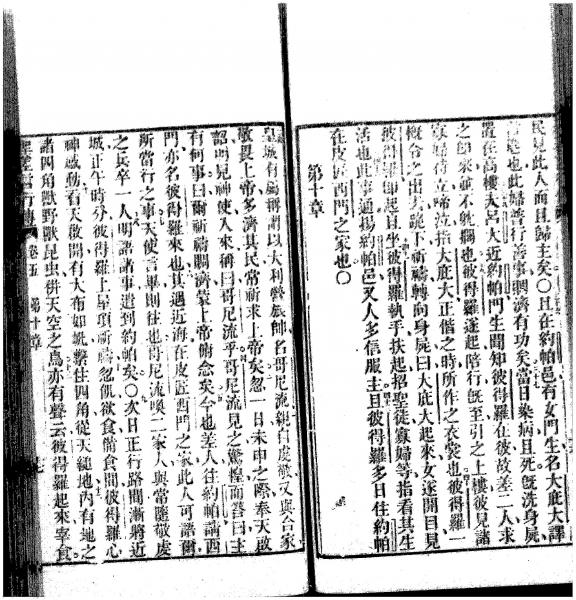 民見此人而且歸主矣〇且在約帕邑有女門生名大庇大譯
也此婦善行善事賙濟有功矣當日染病且死旣洗身屍
置在高樓夫呂大近約帕門生聞知彼得羅在彼故差二人求
之卽來並不躭擱也彼得羅遂起陪行旣至引之上樓彼見諸
寡婦侍立啼泣指大庇大正偕之時所作之衣裳也彼得羅一
槪令之出去跪下祈禱轉向身屍曰大庇大起來女遂開目見
彼得羅卽起且坐彼得羅執手扶起招聖徒寡婦等指看其生
活也此事通揚約帕邑又人多信服主且彼得羅多日住約帕
在皮匠西門之家也〇
第十章
皇城有屬所謂以大利營旅帥名哥尼流親自虔敬又與合家
敬畏上帝多濟其民常祈求上帝矣忽一日未申之際奉天啟
詔明見神使入來稱曰哥尼流乎哥尼流見之驚惶而答曰主
有何事曰爾祈禱賙濟蒙上帝俯念矣今也差人往約帕請西
門亦名彼得羅來也其遇近海在皮匠西門之家此人可諳爾
所當行之事天使言畢則往也哥尼流喚二家人與常隨敬虔
之兵卒一人明語諸事遣到約帕矣〇次日正行路間漸將近
城正午時分彼得羅上屋頂祈禱忽飢欲食備食間彼得羅心
神感動看天啟開有大布如帆繫住四角從天縋地內有地之
諸四角獸野獸昆虫併天空之鳥亦有聲云彼得羅起來宰食
卷五 第十章